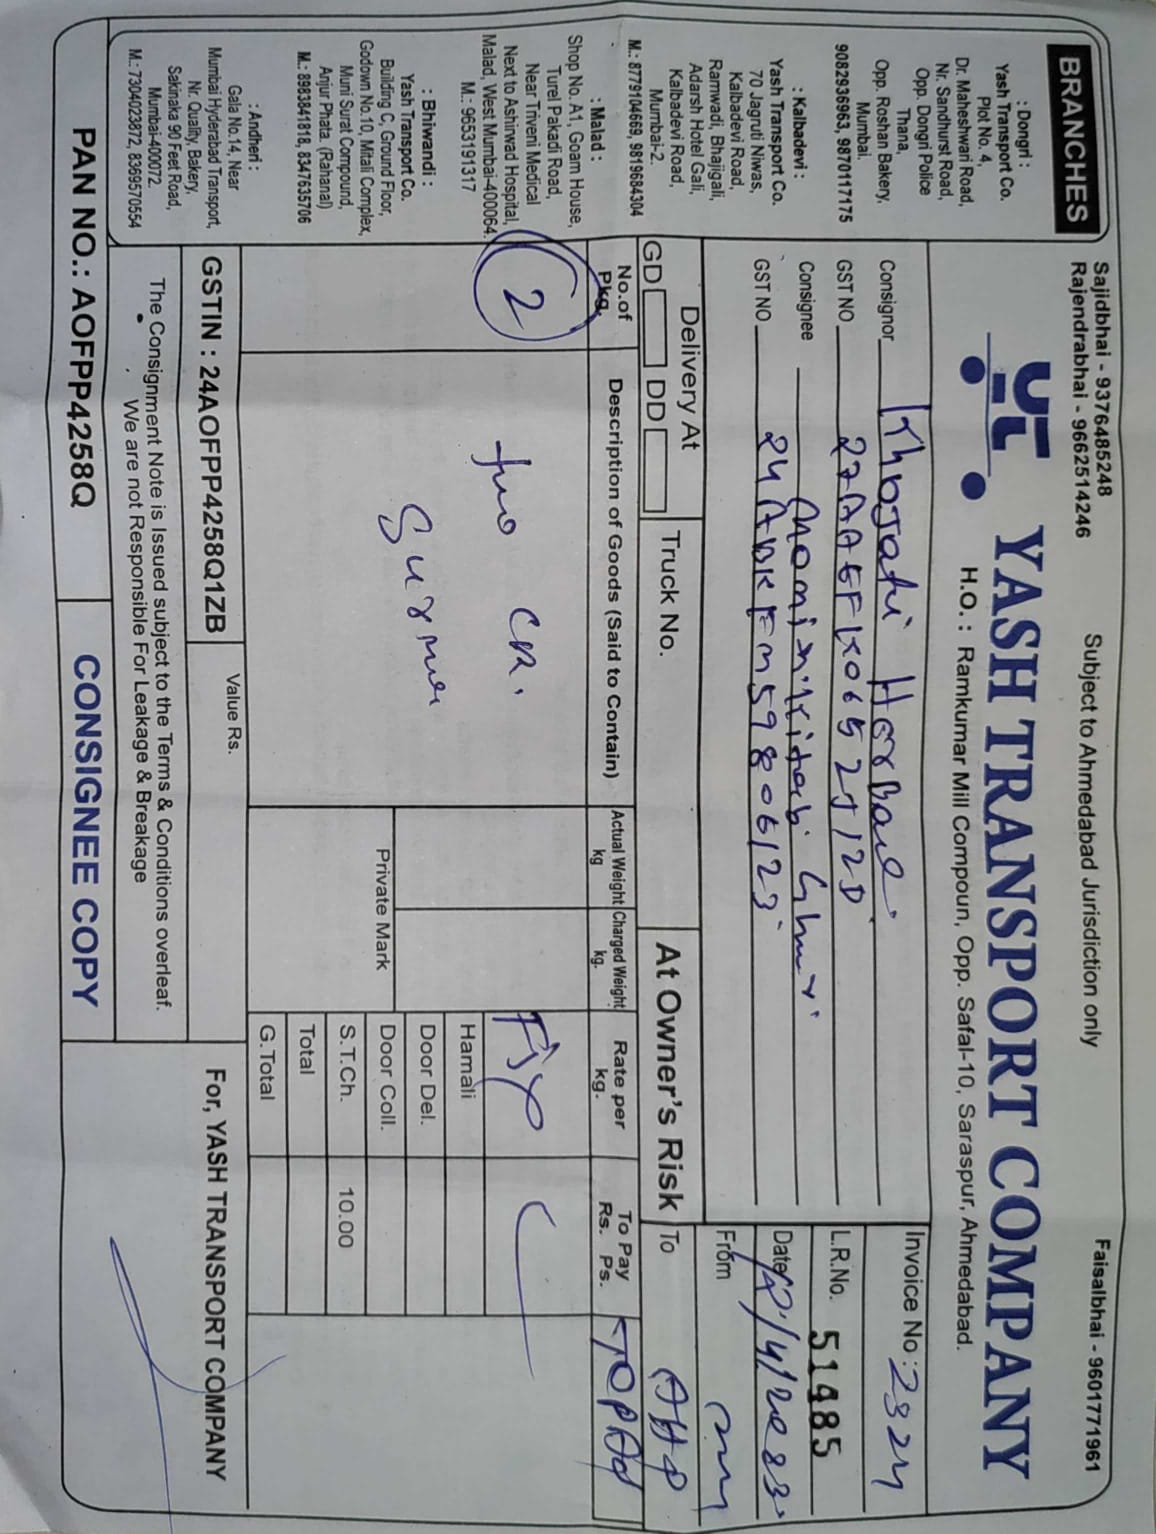 Sajidbhai - 9376485248
Rajendrabhai - 9662514246
Subject to Ahmedabad Jurisdiction only
Faisalbhai - 9601771961
YASH TRANSPORT COMPANY
H.O. : Ramkumar Mill Compoun, Opp. Safal-10, Saraspur, Ahmedabad.
BRANCHES
: Dongri :
Yash Transport Co.
Plot No. 4,
Dr. Maheshwari Road,
Nr. Sandhurst Road,
Opp. Dongri Police
Thana,
Opp. Roshan Bakery,
Mumbai.
9082936963, 9870117175
: Kalbadevi :
Yash Transport Co.
70 Jagruti Niwas,
Kalbadevi Road,
Ramwadi, Bhajigali,
Adarsh Hotel Gali,
Kalbadevi Road,
Mumbai-2.
M.: 8779104669, 9819684304
: Malad :
Shop No. A1, Goam House,
Turel Pakadi Road,
Near Triveni Medical
Next to Ashirwad Hospital,
Malad, West Mumbai-400064.
M.: 9653191317
: Bhiwandi :
Yash Transport Co.
Building C, Ground Floor,
Godown No.10, Mitali Complex,
Muni Surat Compound,
Anjur Phata. (Rahanal)
M.: 8983841818, 834763570​6
: Andheri :
Gala No.14, Near
Mumbai Hyderabad Transport,
Nr. Quality, Bakery,
Sakinaka 90 Feet Road,
Mumbai-400072.
M.: 7304023872, 8369570554
Consignor
GST NO
Consignee
GST NO
Invoice No : 2324
L.R.No. 51485
Date
From
Delivery At
GD DD
Truck No.
At Owner's Risk
To
No.of Pkg.
Description of Goods (Said to Contain)
Actual Weight kg
Charged Weight kg.
Rate per kg.
To Pay Rs. Ps.
2
Two
Fix
Hamali
Door Del.
Private Mark
Door Coll.
S.T.Ch. 10.00
Total
G.Total
GSTIN : 24AOFPP4258Q1ZB
Value Rs.
For, YASH TRANSPORT COMPANY
The Consignment Note is Issued subject to the Terms & Conditions overleaf.
We are not Responsible For Leakage & Breakage
PAN NO.: AOFPP4258Q
CONSIGNEE COPY